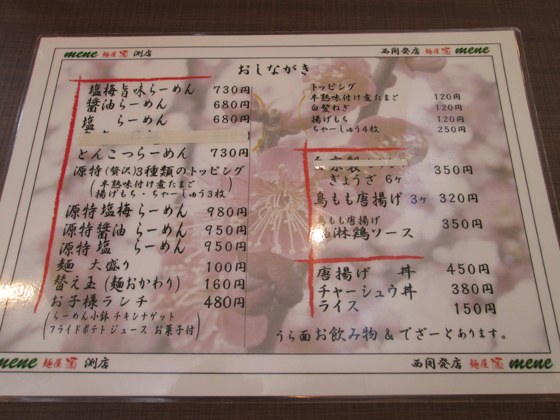 mene 麺屋 渕店
西開発店 麺屋 mene
おしながき
塩梅旨味らーめん 730円
醤油らーめん 680円
塩 らーめん 680円
とんこつらーめん 730円
源特(贅沢)3種類のトッピング
(半熟味付け煮たまご
揚げもち・ちゃーしゅう3枚)
源特塩梅らーめん 980円
源特醤油らーめん 950円
源特塩 らーめん 950円
麺 大盛り 100円
替え玉(麺おかわり) 160円
お子様ランチ 480円
(らーめん小鉢 チキンナゲット
フライドポテト ジュース お菓子付)
トッピング
半熟味付け煮たまご 120円
白髪ねぎ 120円
揚げもち 120円
ちゃーしゅう4枚 250円
ぎょうざ 6ヶ 350円
鳥もも唐揚げ 3ヶ 320円
鳥もも唐揚げ
油淋鶏ソース 350円
唐揚げ 丼 450円
チャーシュウ丼 380円
ライス 150円
うら面お飲み物&でざーとあります。
mene 麺屋 渕店
西開発店 麺屋 mene